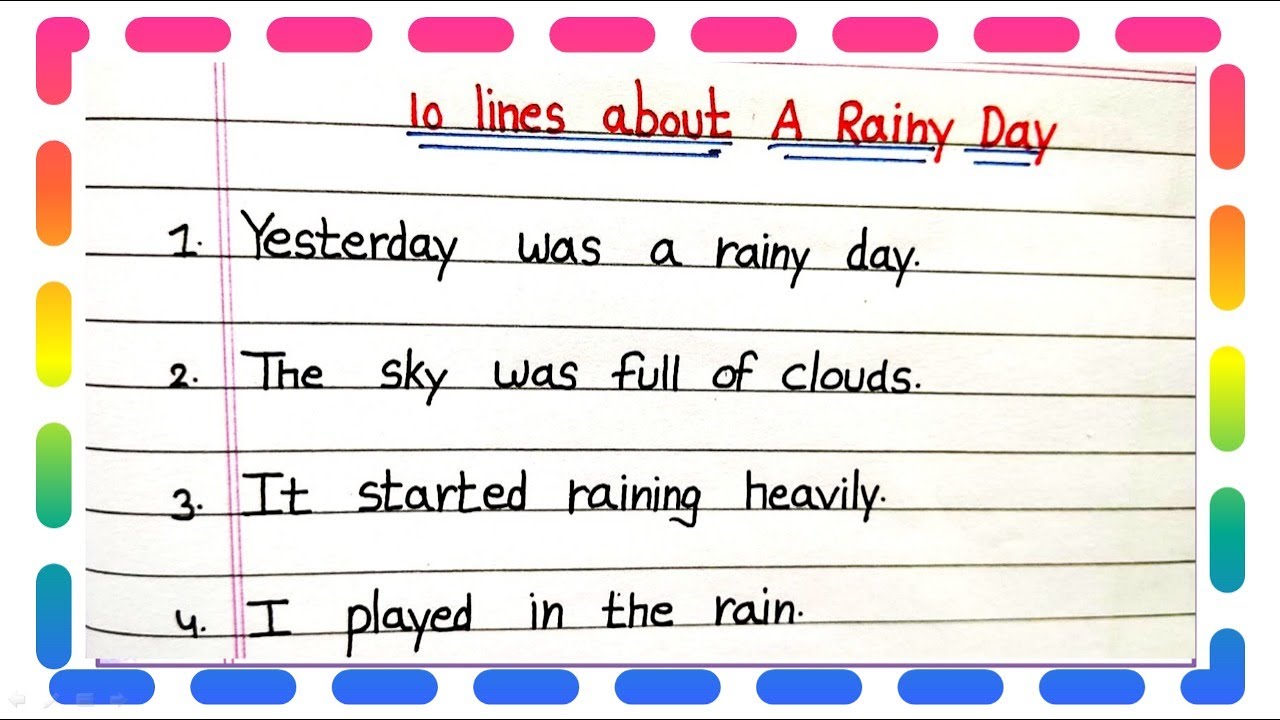 10 lines about A Rainy Day
1. Yesterday was a rainy day.
2. The sky was full of clouds.
3. It started raining heavily.
4. I played in the rain.